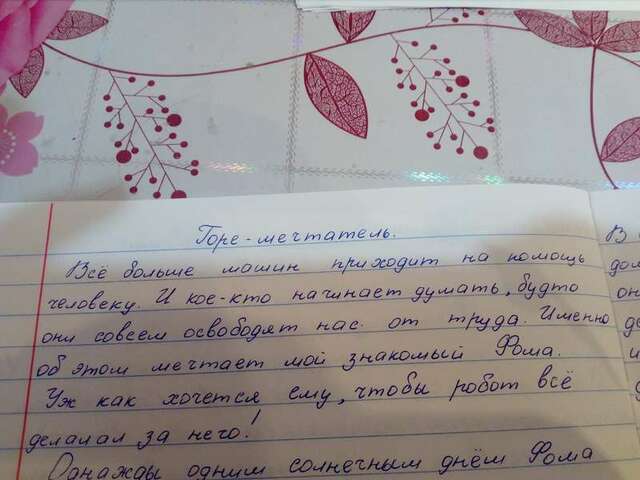 Горе-мечтатель.
Всё больше машин приходит на помощь
человеку. И кое-кто начинает думать, будто
они совсем освободят нас от труда. Именно
об этом мечтает мой знакомый Фома.
Уж как хочется ему, чтобы робот всё
делал за него!
Однажды одним солнечным днём Фома